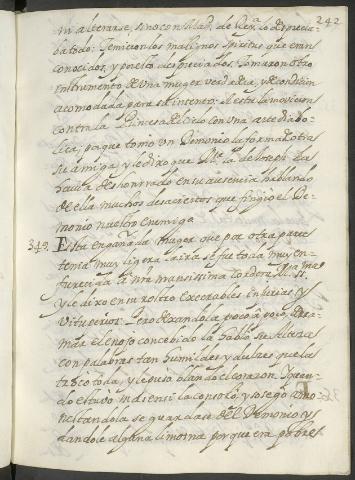 242
sin alterarse, sino con Magd. de Reyna lo desprecia
ba todo. Temieron los malignos spiritus que eran
conocidos, y puesto despreciados. Tomaron otro
instrumento de una muger verdadera, y de condicion
acomodada para su intento. A esta la movieron
contra la Princesa del Cielo con una arte diabo
lica; porque tomo un Demonio la forma de otra
su amiga, y le dixo que Ma. la de Joseph la
havia deshonrrado en su ausencia hablando
de ella muchos desaciertos que fingio el De
monio nuestro enemigo.
343. Esta engañada Muger que por otra parte
tenia muy ligera la ira se fue toda muy en
furecida a nra mansissima Cordera Ma. SSma.
y le dixo en su rostro execrables injurias y
vituperios. Pero dexandola poco a poco derra
mar el enojo concebido la hablo su Alteza
con palabras tan humildes y dulces que la
troco toda, y le puso blando el coraçon. Y quan
do estuvo mas en si la consolo, y sosego amo
nestandola se guardase del Demonio, y
dandole alguna limosna porque era pobre